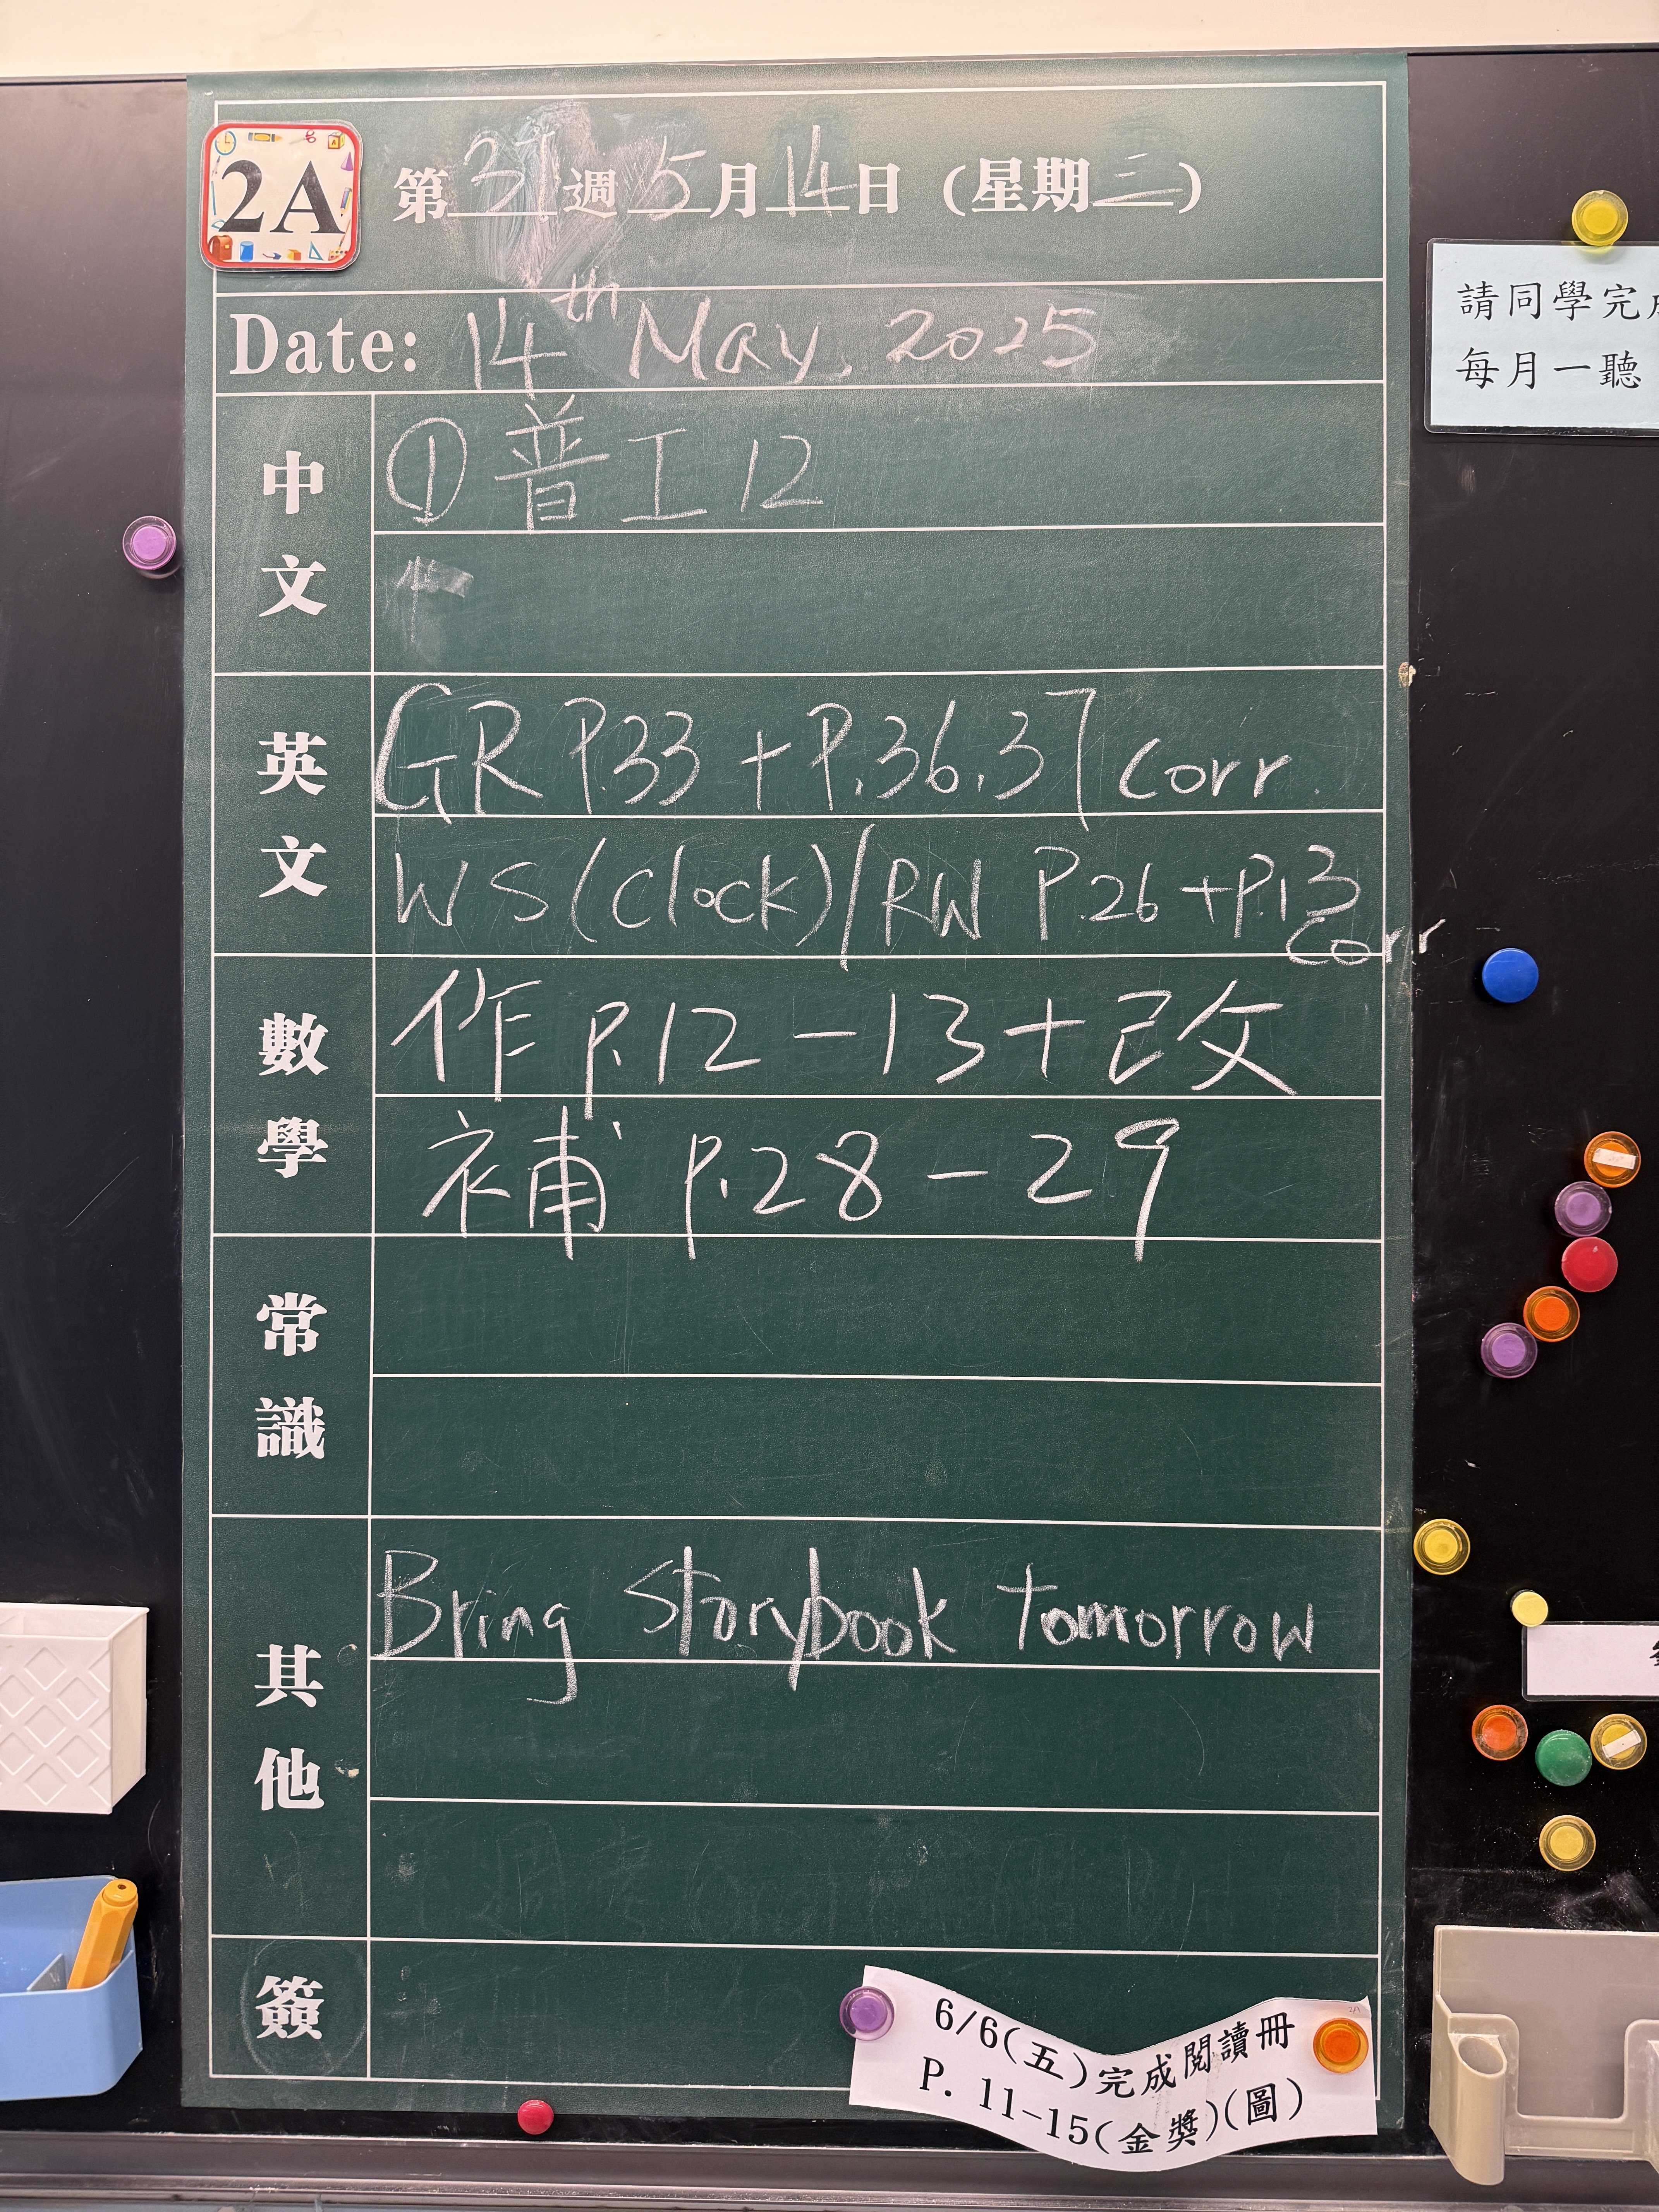 2A
第37週5月14日(星期三)
Date: 14th May, 2025
請同學完
每月一聽
中文
① 普工12
英文
GR P.33 + P.36,37 corr.
WS (Clock)/RW P.26 + P.13
corr
數學
作 p.12-13+已改
補 p.28-29
常識
其他
Bring storybook tomorrow
簽
6/6(五)完成閱讀冊
P. 11-15(金獎)(圖)